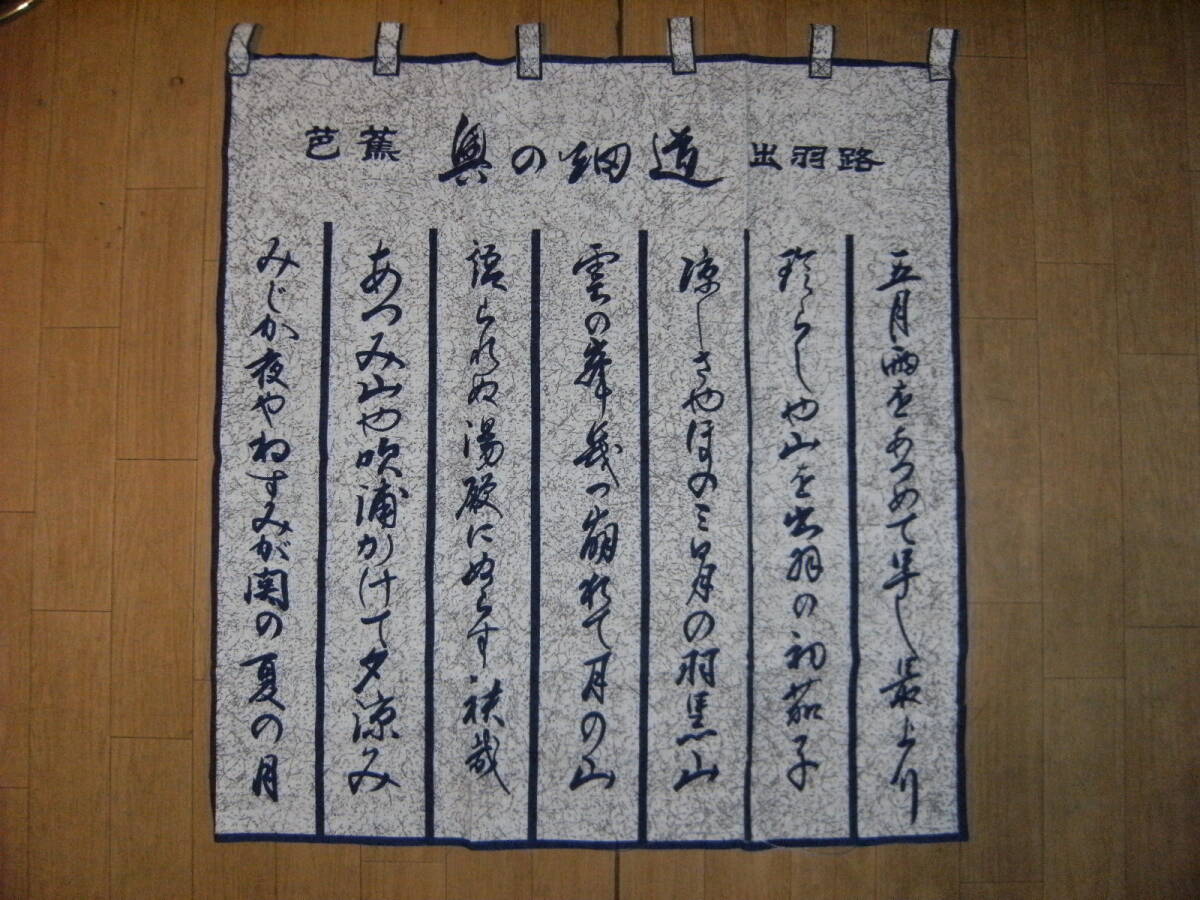 芭蕉 奥の細道 出羽路
五月雨をあつめて早し最上川
珍らしや山を出羽の初茄子
涼しさやほの三日月の羽黒山
雲の峯幾つ崩れて月の山
語られぬ湯殿にぬらす袂哉
あつみ山や吹浦かけて夕涼み
みじか夜やねすみが関の夏の月